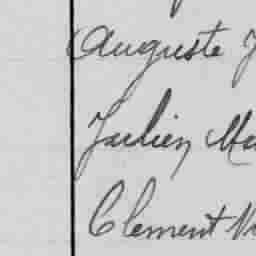 Auguste J
Julien Ma
Clement Vi